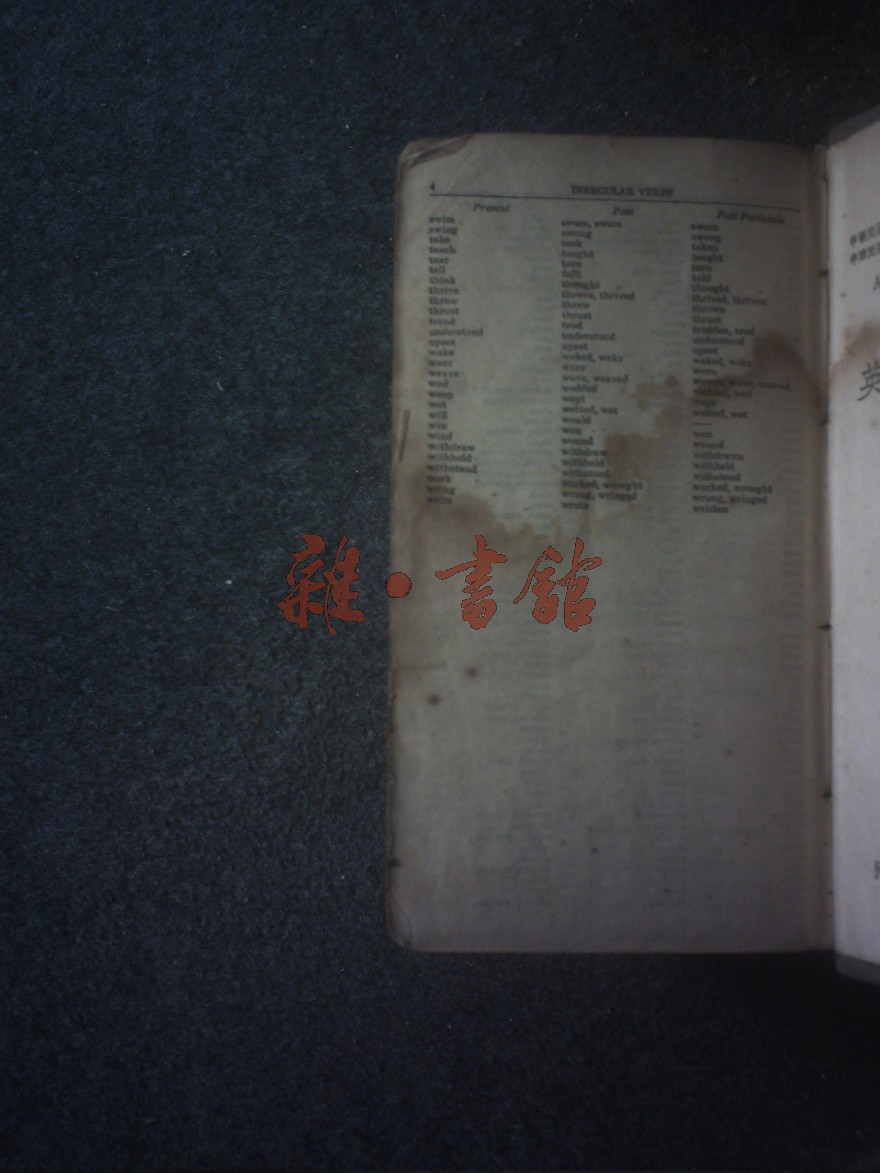 4 IRREGULAR VERBS
Present Past Past Participle
swim swam, swum swum
swing swung swung
take took taken
teach taught taught
tear tore torn
tell told told
think thought thought
thrive throve, thrived thrived, thriven
throw threw thrown
thrust thrust thrust
tread trod trodden, trod
understand understood understood
upset upset upset
wake waked, woke waked, woke
wear wore worn
weave wove, weaved woven, wove, weaved
wed wedded wedded, wed
weep wept wept
wet wetted, wet wetted, wet
will would —
win won won
wind wound wound
withdraw withdrew withdrawn
withhold withheld withheld
withstand withstood withstood
work worked, wrought worked, wrought
wring wrung, wringed wrung, wringed
write wrote written
雜·書館
英